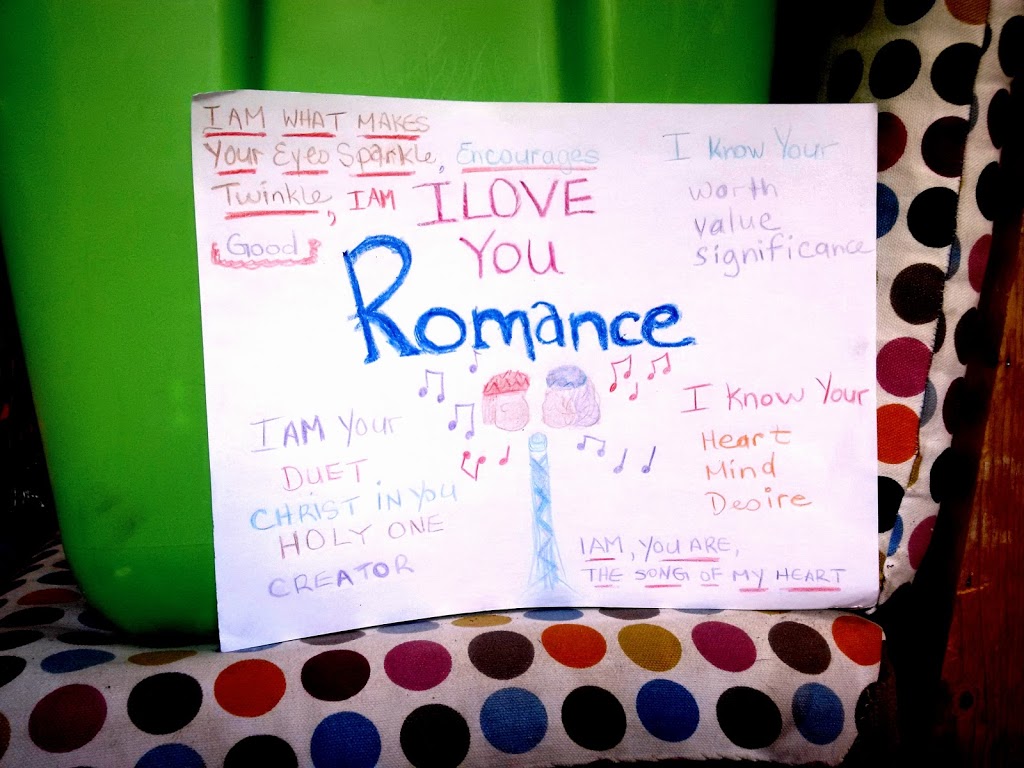 I AM WHAT MAKES
Your Eyes Sparkle, Encourages
Twinkle, I AM
Good
I LOVE
You
Romance
I Know Your
worth
value
significance
I AM Your
DUET
CHRIST iN YOU
HOLY ONE
CREATOR
I Know Your
Heart
Mind
Desire
I AM, YOU ARE,
THE SONG OF MY HEART